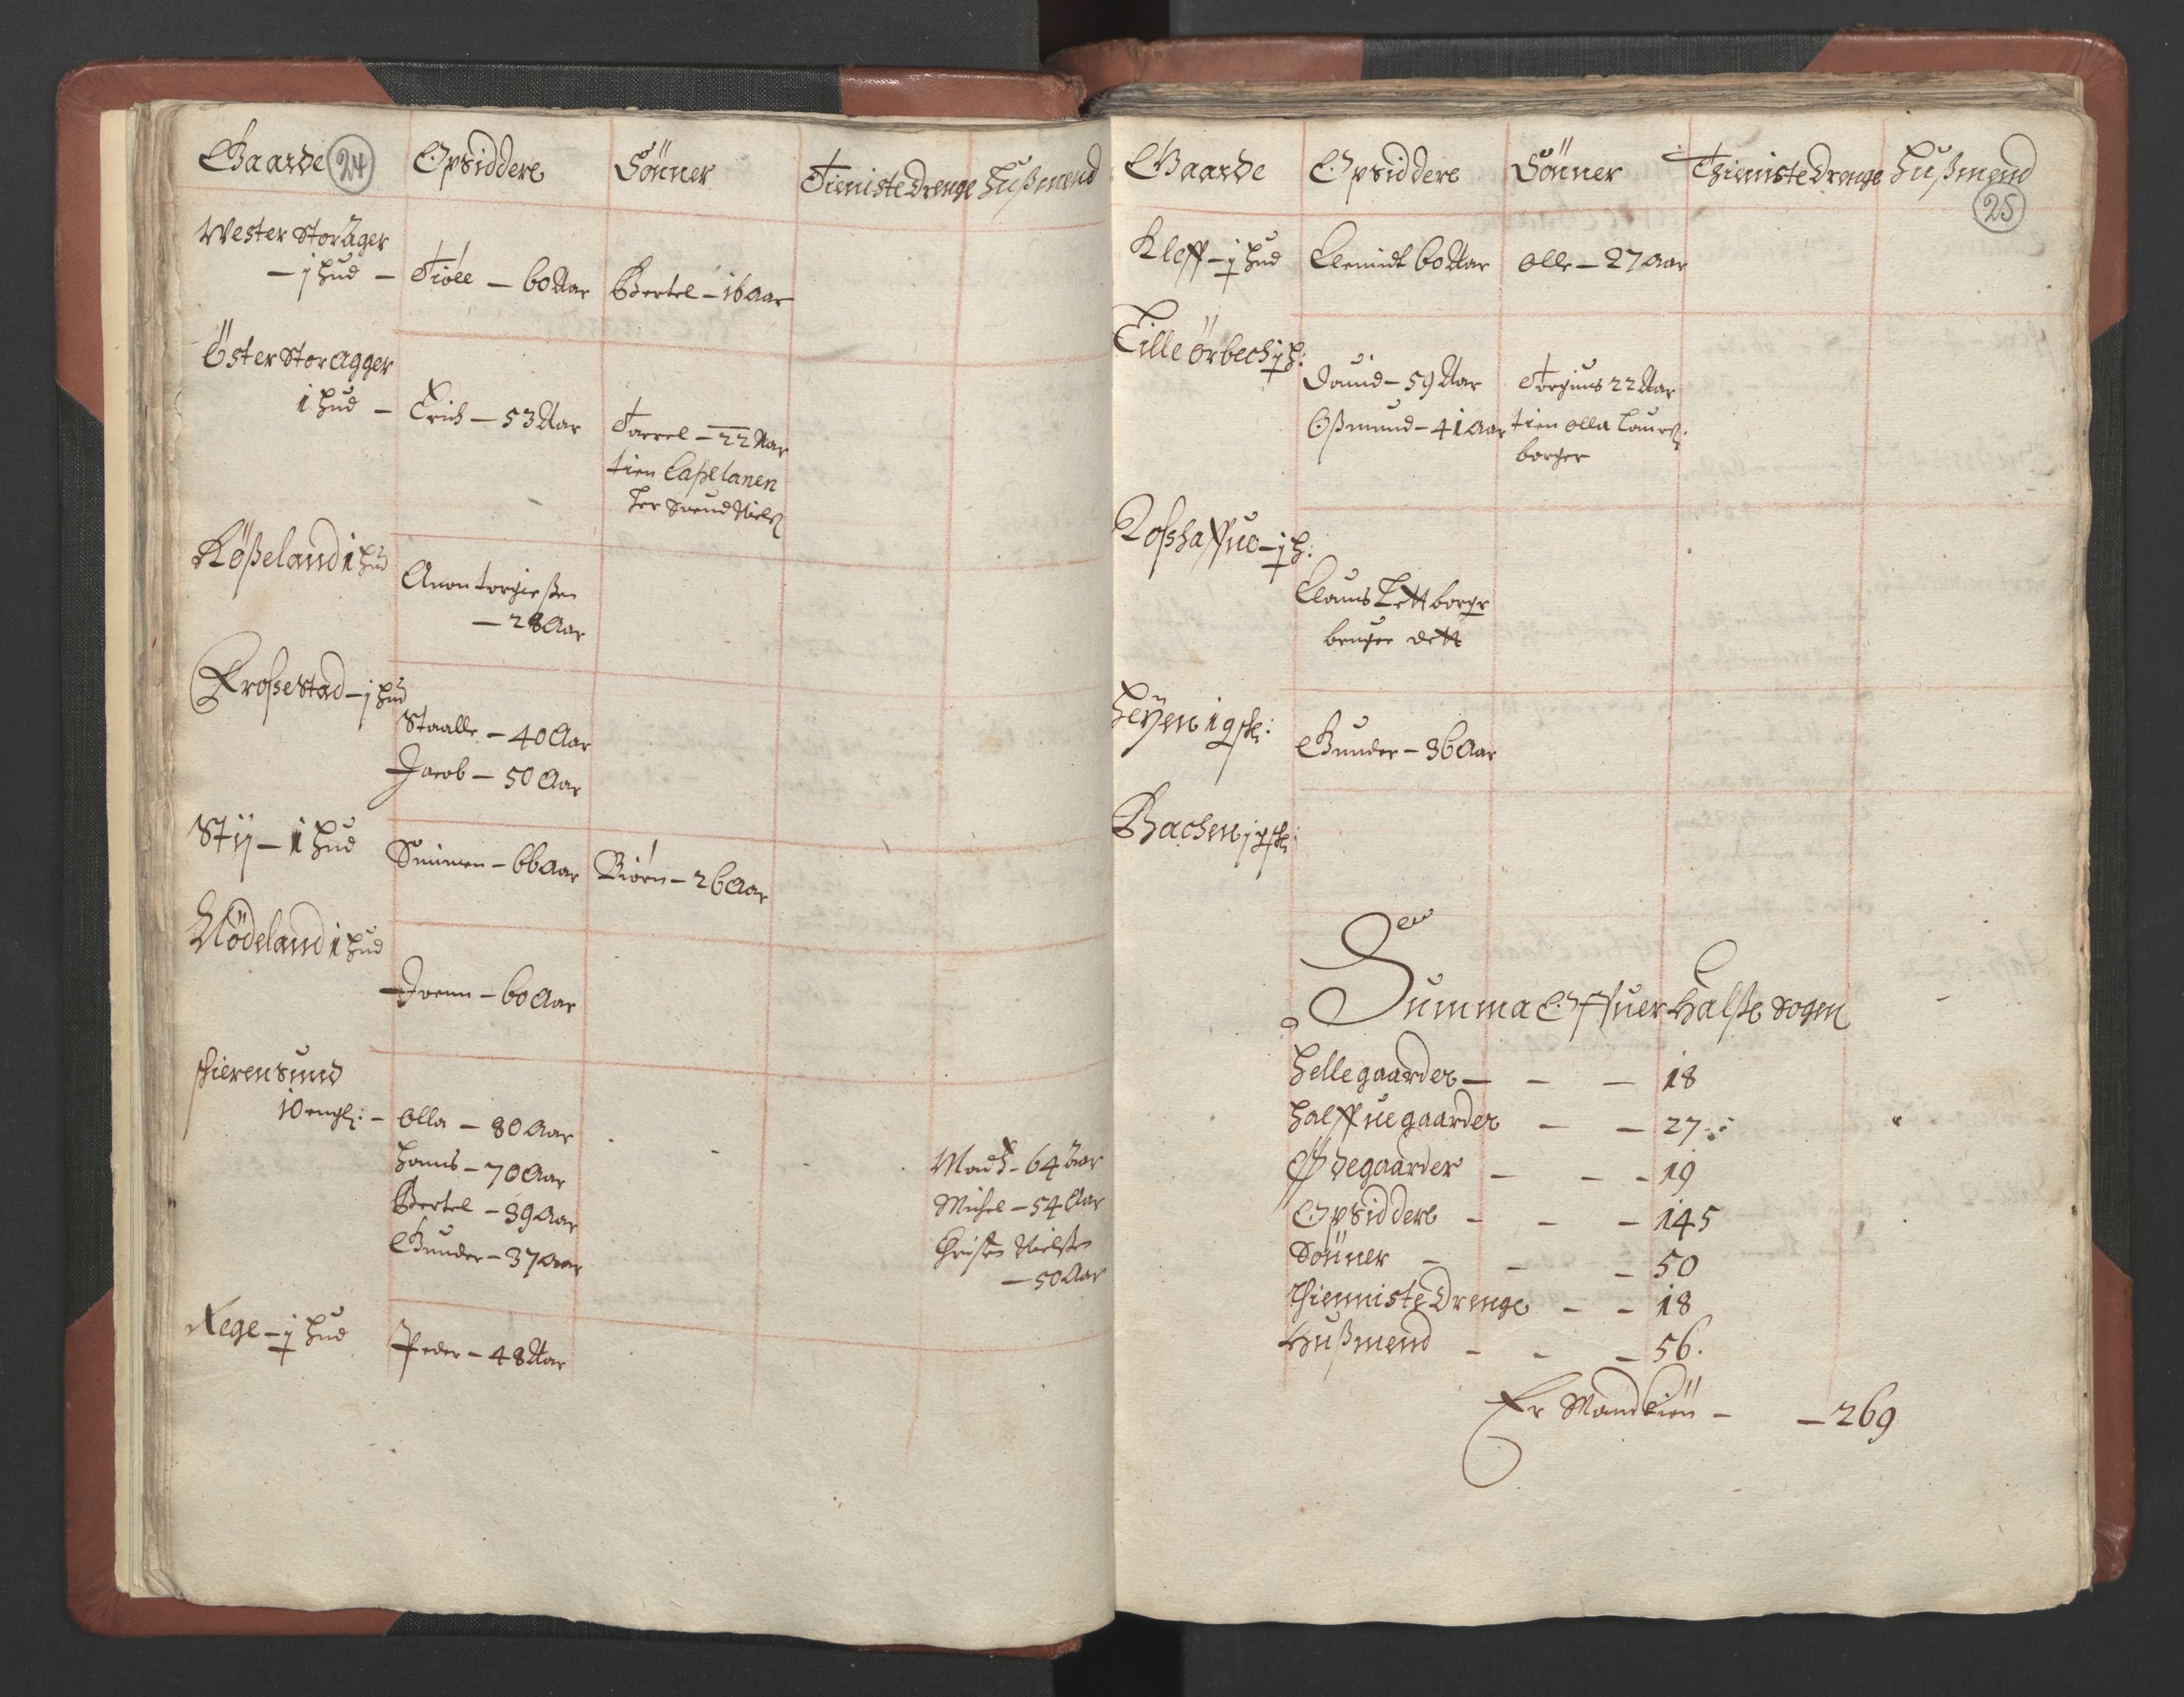 Gaarde 24 Opsiddere Sönner Tieniste Drenge Hußmend
Wester Storäger
– j hud – Tiøll – 60 Aar Bertel – 16 Aar
Öster Storagger
1 hud – Erich – 53 Aar Torrel – 22 Aar
tien Capelanen
her Suend Niels
Rößeland 1 hud
Anon torgierßen
– 28 Aar
Kroßestad – j hud
Staalle – 40 Aar
Jacob – 50 Aar
Stÿ – 1 hud Simmen – 66 Aar Biörn – 26 Aar
Nödeland 1 hud
Joenn – 60 Aar
Schierensund
10 engl: – Olla – 80 Aar
Hanns – 70 Aar Madß – 64 Aar
Bertel – 39 Aar Michel – 54 Aar
Gunder – 37 Aar Christen Nielßen
– 50 Aar
Rege – j hud Peder – 48 Aar
Gaarde Opsiddere Sönner Thieniste Drenge Hußmend
25
Kleff – j hud Clemidt 60 Aar Olle – 27 Aar
Lille örbech j h:
Dauid – 59 Aar Torgiuus 22 Aar
Oßmund – 41 Aar tien olla Laurs:
borger
Roßhaffue – j h:
Clauus Lett borger
bruger dett
Heÿen 1 g sk:
Gunder – 36 Aar
Bachen j g sk:
Summa Offuer Halße Sogen
Hellegaarder – – – 18
Halffuegaarder – – 27
Ödegaarder – – – 19
Opsiddere – – – 145
Sönner – – – 50
Thienniste Drenge – – 18
Hußmend – – – 56.
Er Mandkiön – – 269